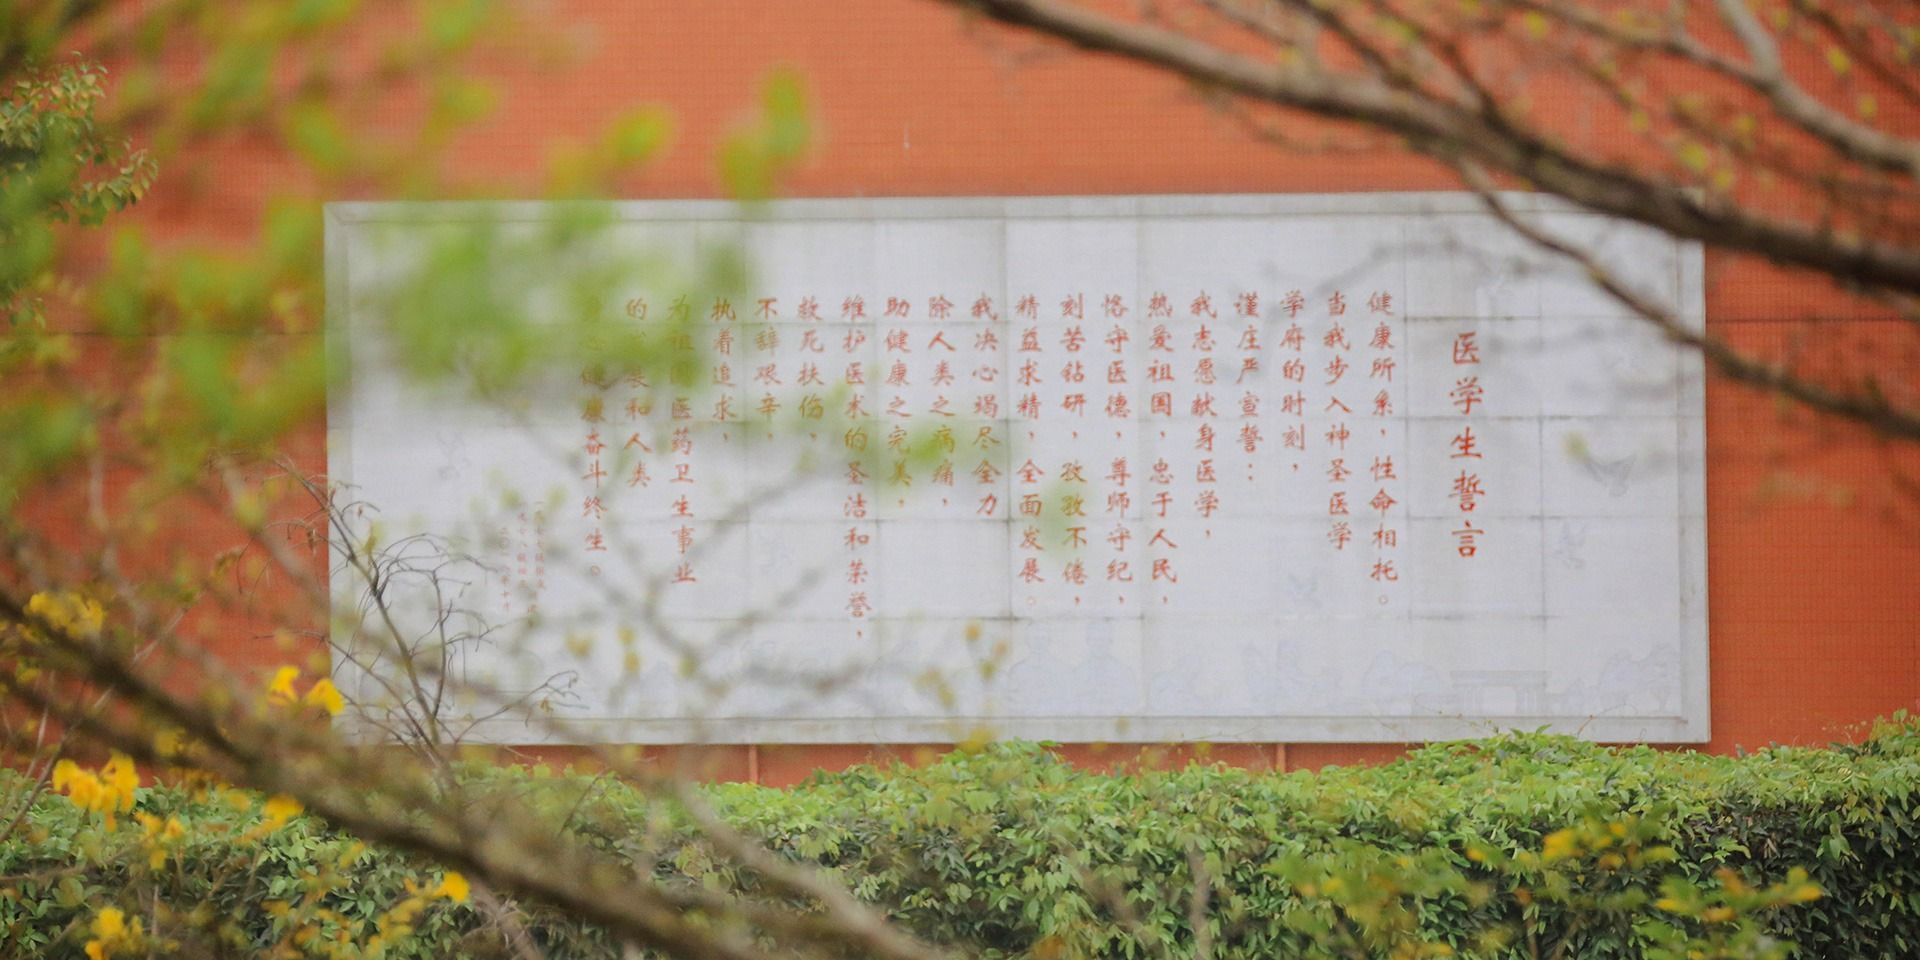 医学生誓言
健康所系，性命相托。
当我步入神圣医学
学府的时刻，
谨庄严宣誓：
我志愿献身医学，
热爱祖国，忠于人民，
恪守医德，尊师守纪，
刻苦钻研，孜孜不倦，
精益求精，全面发展。
我决心竭尽全力
除人类之病痛，
助健康之完美，
维护医术的圣洁和荣誉，
救死扶伤，
不辞艰辛，
执着追求，
为祖国医药卫生事业
的发展和人类
身心健康奋斗终生。